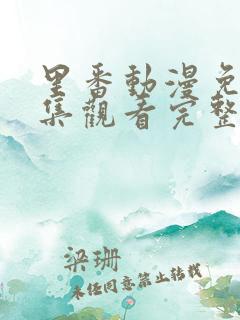 里番動漫免
集觀看完整
梁珊
未经同意禁止转载